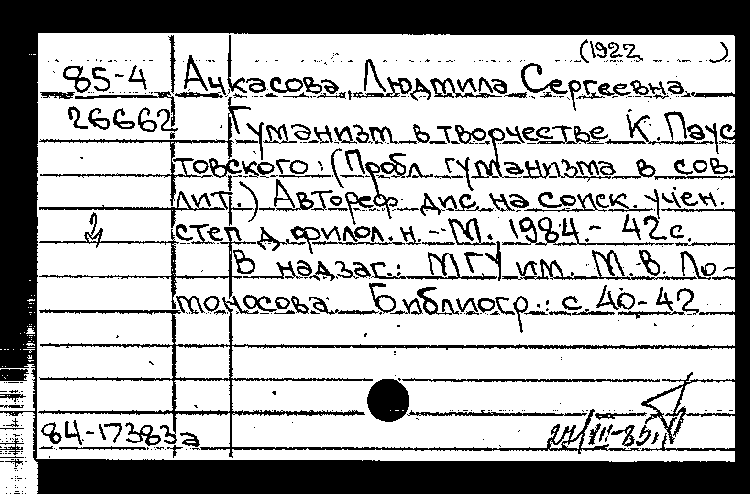 (1922 )
85-4 Ачкасова, Людмила Сергеевна
26662 Гуманизм в творчестве К. Паус
товского: (Пробл гуманизма в сов.
лит.) Автореф дис на соиск. учен.
2 степ д. филол. н. - М. 1984. - 42 с.
В надзаг.: МГУ им. М. В. Ло-
моносова Библиогр.: с. 40-42
84-17383а 27/VII-85г